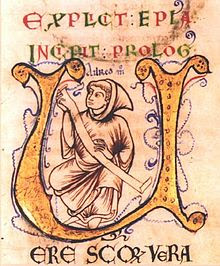 EXPLICT : EPLA
INCIPIT : PROLOG
V
ERE SCOꝜ VERA